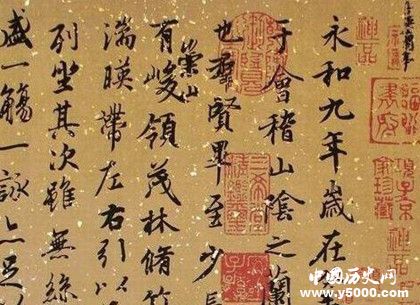 神品
永和九年歲在
于會稽山陰之蘭
也羣賢畢至少長
有崇山峻領茂林脩竹
湍暎帶左右引以
列坐其次雖無絲
盛一觴一詠亦足以
中國历史网
www.y5000.com